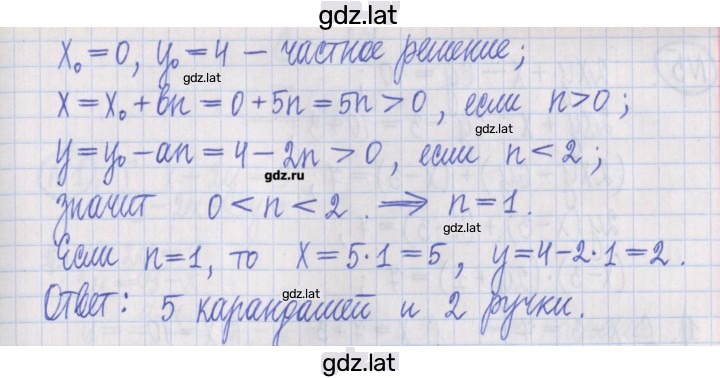 gdz.lat
x₀ = 0, y₀ = 4 – частное решение;
gdz.lat
x = x₀ + bn = 0 + 5n = 5n > 0, если n > 0;
gdz.lat
y = y₀ – an = 4 – 2n > 0, если n < 2;
gdz.ru
значит 0 < n < 2. ⟹ n = 1.
gdz.lat
Если n = 1, то x = 5·1 = 5, y = 4 – 2·1 = 2.
gdz.lat
Ответ: 5 карандашей и 2 ручки.
gdz.lat